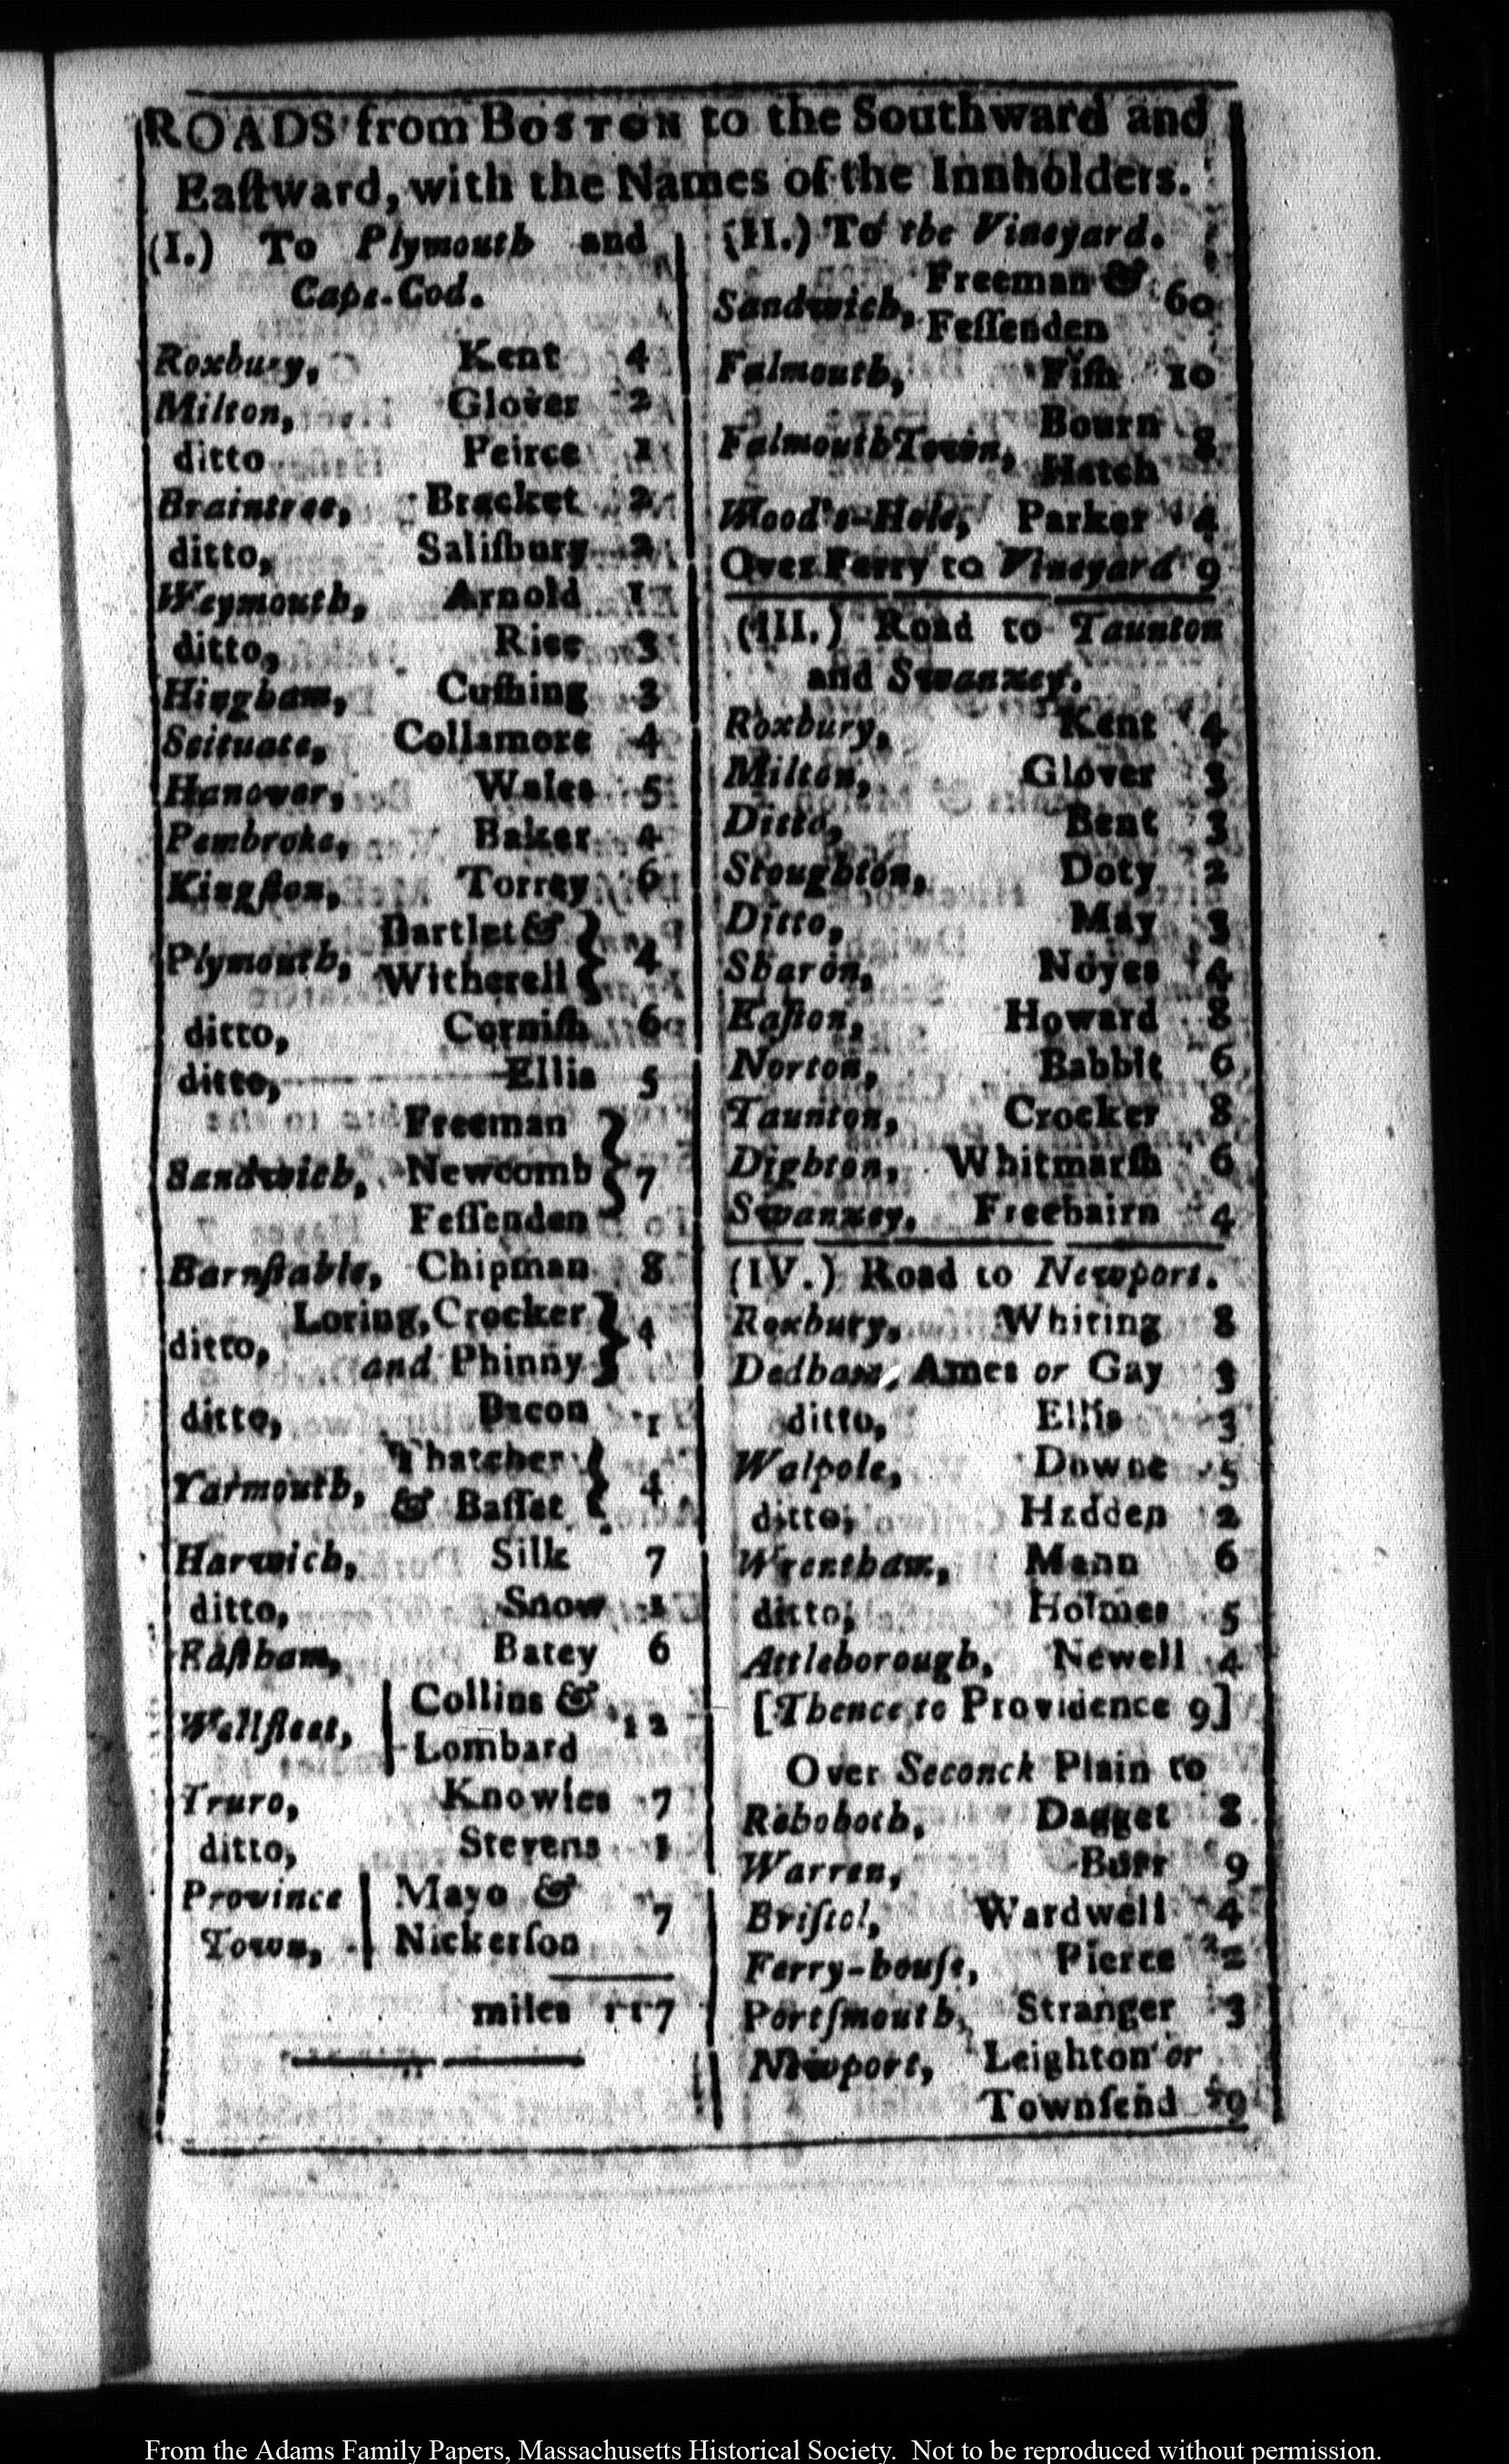 ROADS from BOSTON to the Southward and
Eaſtward, with the Names of the Innholders.
(I.) To Plymouth and
Cape-Cod.
Roxbury, Kent 4
Milton, Glover 2
ditto Peirce 1
Braintree, Bracket 2
ditto, Saliſbury 2
Weymouth, Arnold 1
ditto, Rice 3
Hingham, Cuſhing 3
Scituate, Collamore 4
Hanover, Wales 5
Pembroke, Baker 4
Kingſton, Torrey 6
Plymouth, Bartlet & Witherell } 4
ditto, Corniſh 6
ditto, Ellis 5
Sandwich, Freeman Newcomb Feſſenden } 7
Barnſtable, Chipman 8
ditto, Loring, Crocker and Phinny } 4
ditto, Bacon 1
Yarmouth, Thatcher & Baſſet } 4
Harwich, Silk 7
ditto, Snow 1
Eaſtham, Batey 6
Wellfleet, Collins & Lombard 12
Truro, Knowles 7
ditto, Stevens 1
Province Town, Mayo & Nickerſon 7
miles 117
(II.) To the Vineyard.
Sandwich, Freeman & Feſſenden 60
Falmouth, Fiſh 10
Falmouth Town, Bourn Hatch 8
Wood's-Hole, Parker 4
Over Ferry to Vineyard 9
(III.) Road to Taunton
and Swanzey.
Roxbury, Kent 4
Milton, Glover 3
Ditto, Bent 3
Stoughton, Doty 2
Ditto, May 3
Sharon, Noyes 4
Eaſton, Howard 8
Norton, Babbit 6
Taunton, Crocker 8
Dighton, Whitmarſh 6
Swanzey, Freebairn 4
(IV.) Road to Newport.
Roxbury, Whiting 8
Dedham, Ames or Gay 3
ditto, Ellis 3
Walpole, Downe 5
ditto, Hadden 2
Wrentham, Mann 6
ditto, Holmes 5
Attleborough, Newell 4
[Thence to Providence 9]
Over Seconck Plain to
Rehoboth, Dagget 8
Warren, Burr 9
Briſtol, Wardwell 4
Ferry-houſe, Pierce 2
Portſmouth, Stranger 3
Newport, Leighton or
Townſend 9
From the Adams Family Papers, Massachusetts Historical Society. Not to be reproduced without permission.